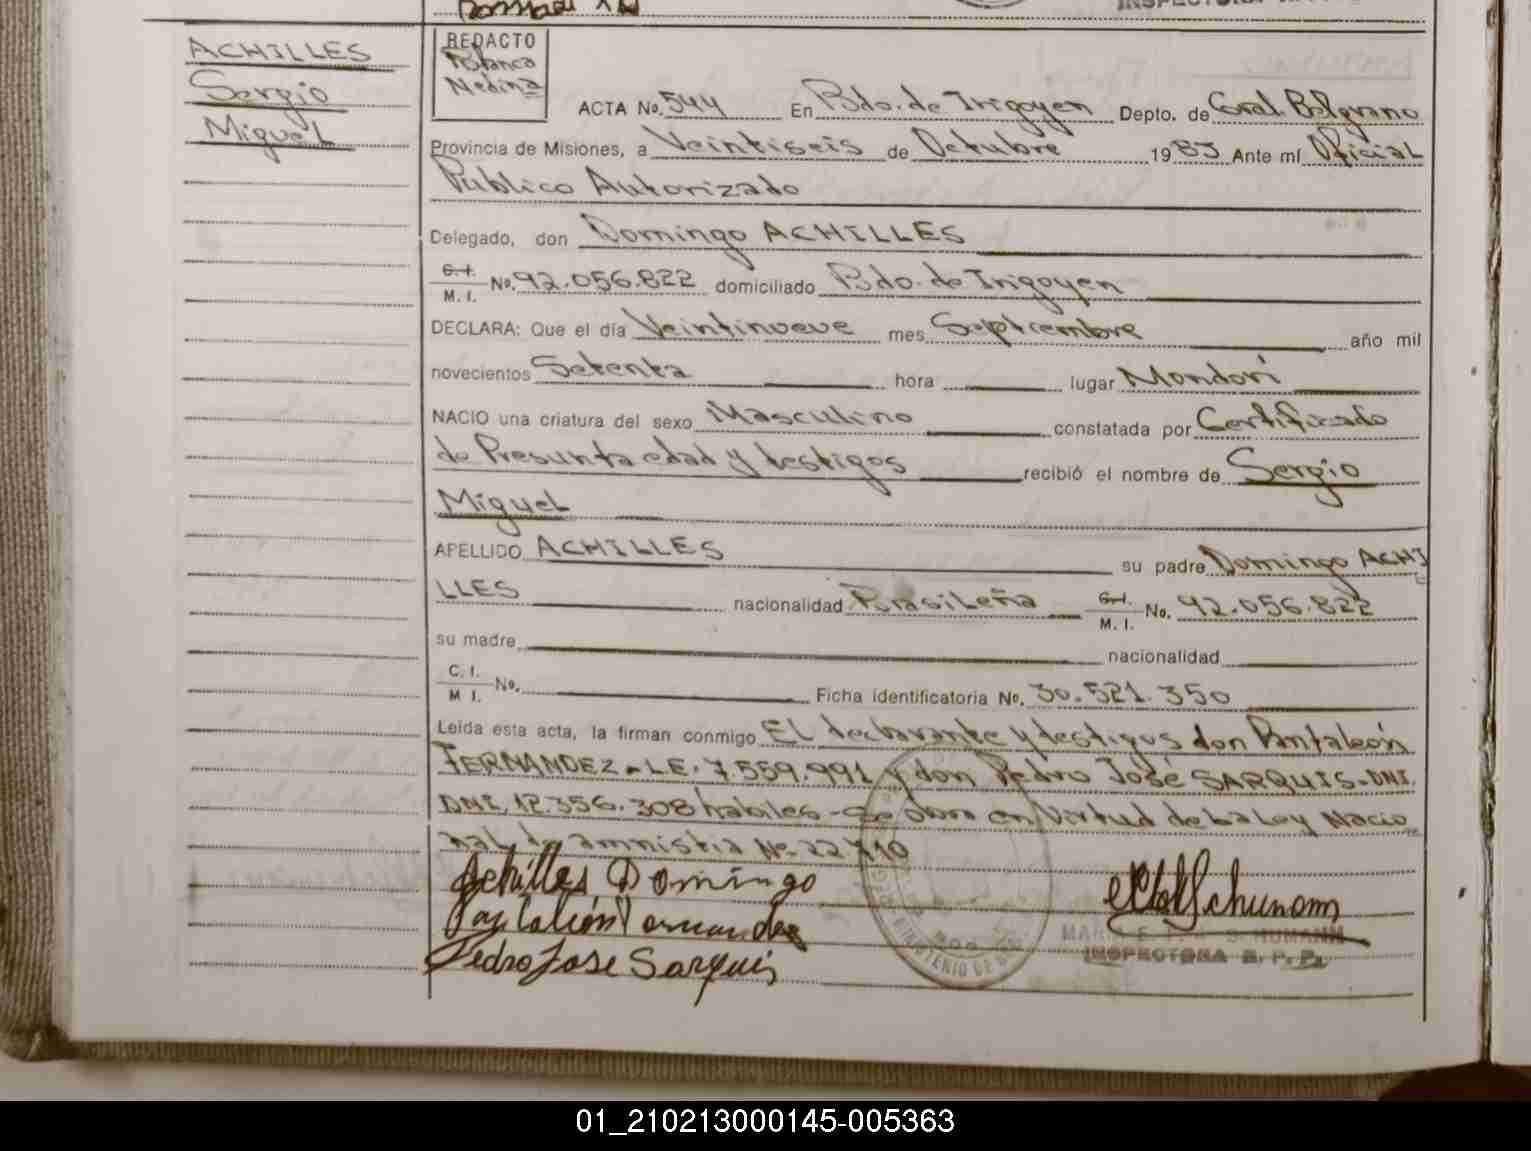 ACHILLES
Sergio
Miguel
REDACTO
Blanca
Medina
ACTA No. 544 En Bdo. de Irigoyen Depto. de Gral. Belgrano
Provincia de Misiones, a Veintiseis de Octubre 1983 Ante mí Oficial
Público Autorizado
Delegado, don Domingo ACHILLES
C.I. M. I. No. 92.056.822 domiciliado Bdo. de Irigoyen
DECLARA: Que el día Veintinueve mes Septiembre año mil
novecientos Setenta hora lugar Mondorí
NACIO una criatura del sexo Masculino constatada por Certificado
de Presunta edad y testigos recibió el nombre de Sergio
Miguel
APELLIDO ACHILLES su padre Domingo ACHI
LLES nacionalidad Brasileña C.I. M. I. No. 92.056.822
su madre nacionalidad
C. I. M I. No. Ficha identificatoria No. 30.521.350
Leida esta acta, la firman conmigo El declarante y testigos don Pantaleón
FERNANDEZ - LE. 7.559.991 y don Pedro José SARQUIS - DNI.
DNI. 12.356.308 habiles - Se obra en Virtud de La Ley Nacio
nal de amnistia Nº 22.410
Achilles Domingo
Pantaleón Fernandez
Pedro Jose Sarquis
SCHUMANN
INSPECTORA R. P. P.
01_210213000145-005363